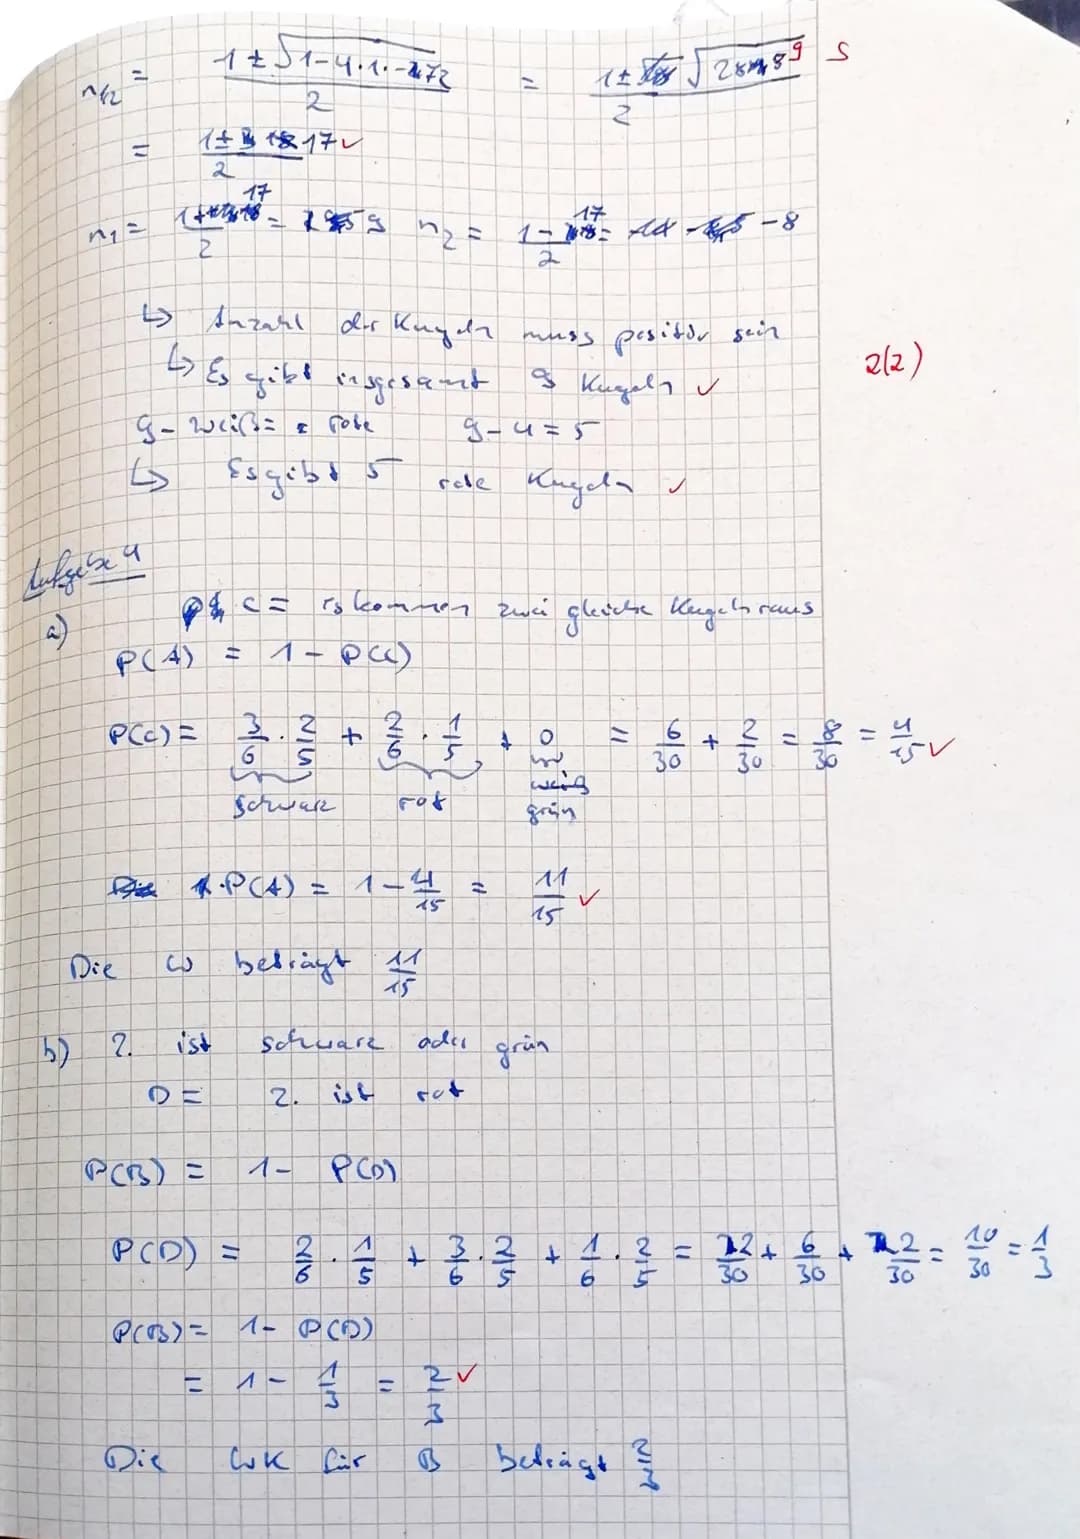 n₁/₂ = (1 ± √(1-4·1·-72))/2 = (1 ± √289)/2 S
= (1 ± 17)/2 ✓
n₁ = (1+17)/2 = 9 n₂ = (1-17)/2 = -8
↳ Anzahl der Kugeln muss positiv sein
↳ Es gibt insgesamt 9 Kugeln ✓ 2(2)
9 - weiß = rote 9-4=5
↳ Es gibt 5 rote Kugeln ✓
Aufgabe 4
a) C = es kommen zwei gleiche Kugeln raus
P(A) = 1 - P(C)
P(C) = 3/6 · 2/5 + 2/6 · 1/5 + 0 = 6/30 + 2/30 = 8/30 = 4/15 ✓
schwarz rot
grün
P(A) = 1 - 4/15 = 11/15 ✓
Die W beträgt 11/15
b) 2. ist schwarz oder grün
D = 2. ist rot
P(B) = 1 - P(D)
P(D) = 2/6 · 1/5 + 3/6 · 2/5 + 1/6 · 2/5 = 2/30 + 6/30 + 2/30 = 10/30 = 1/3
P(B) = 1 - P(D)
= 1 - 1/3 = 2/3 ✓
Die WK für B beträgt 2/3